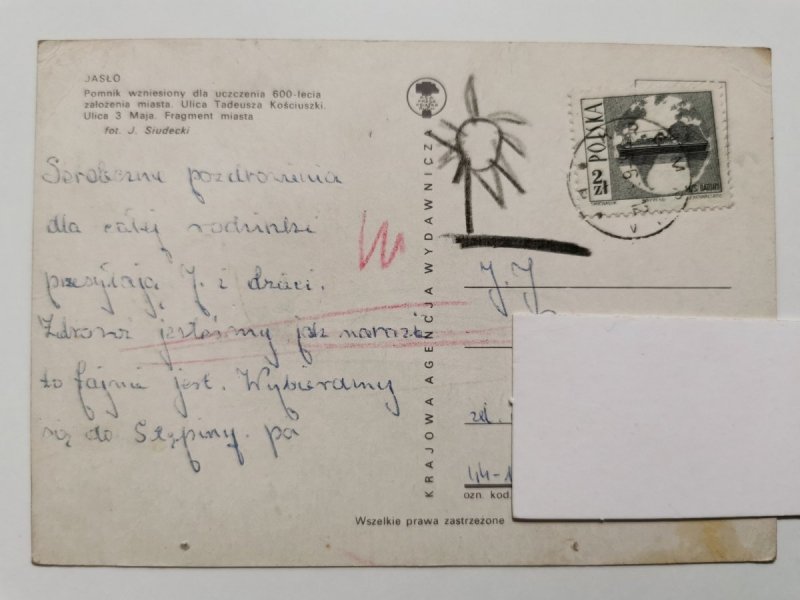 JASŁO
Pomnik wzniesiony dla uczczenia 600-lecia
założenia miasta. Ulica Tadeusza Kościuszki.
Ulica 3 Maja. Fragment miasta
fot. J. Siudecki
Serdeczne pozdrowienia
dla całej rodzinki
przesyłają J. i dzieci.
Zdrowi jesteśmy jak narazie
to fajnie jest. Wybieramy
się do Stępiny. pa
KRAJOWA AGENCJA WYDAWNICZA
POLSKA
2 zł
M/S BATORY
J. J
44-1
ozn. kod.
Wszelkie prawa zastrzeżone